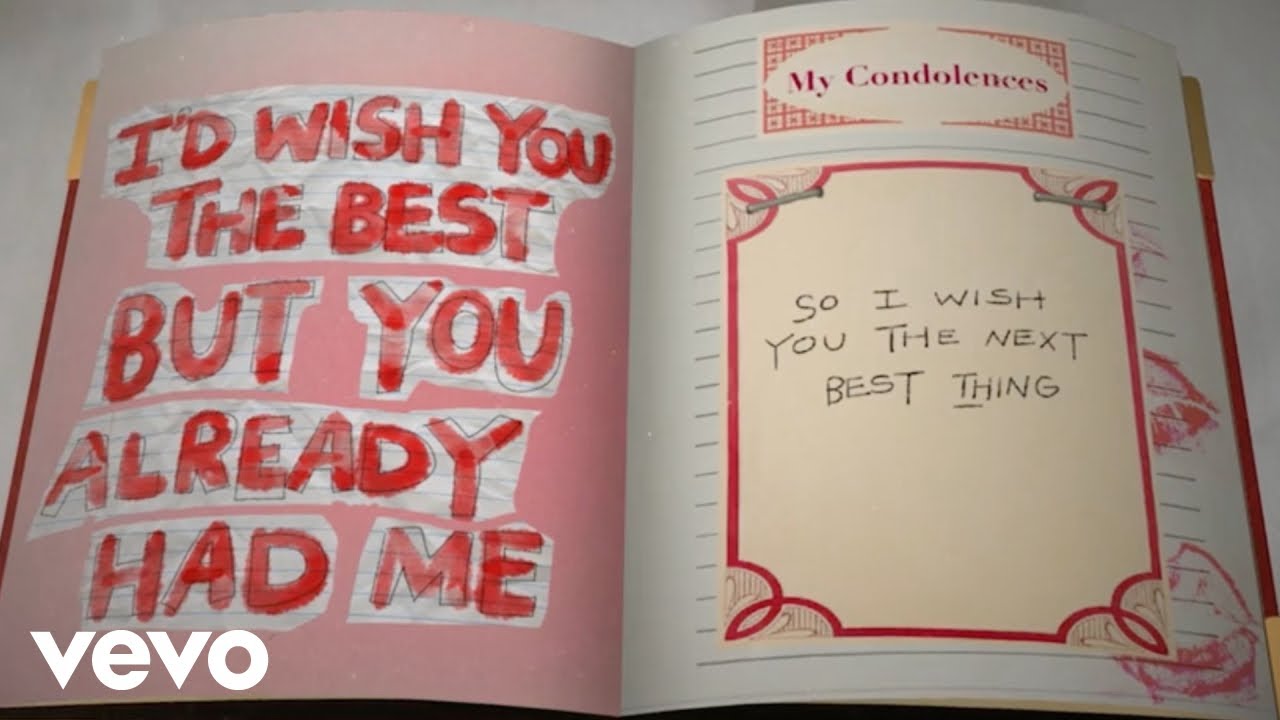 I'D WISH YOU
THE BEST
BUT YOU
ALREADY
HAD ME
My Condolences
SO I WISH
YOU THE NEXT
BEST THING
vevo